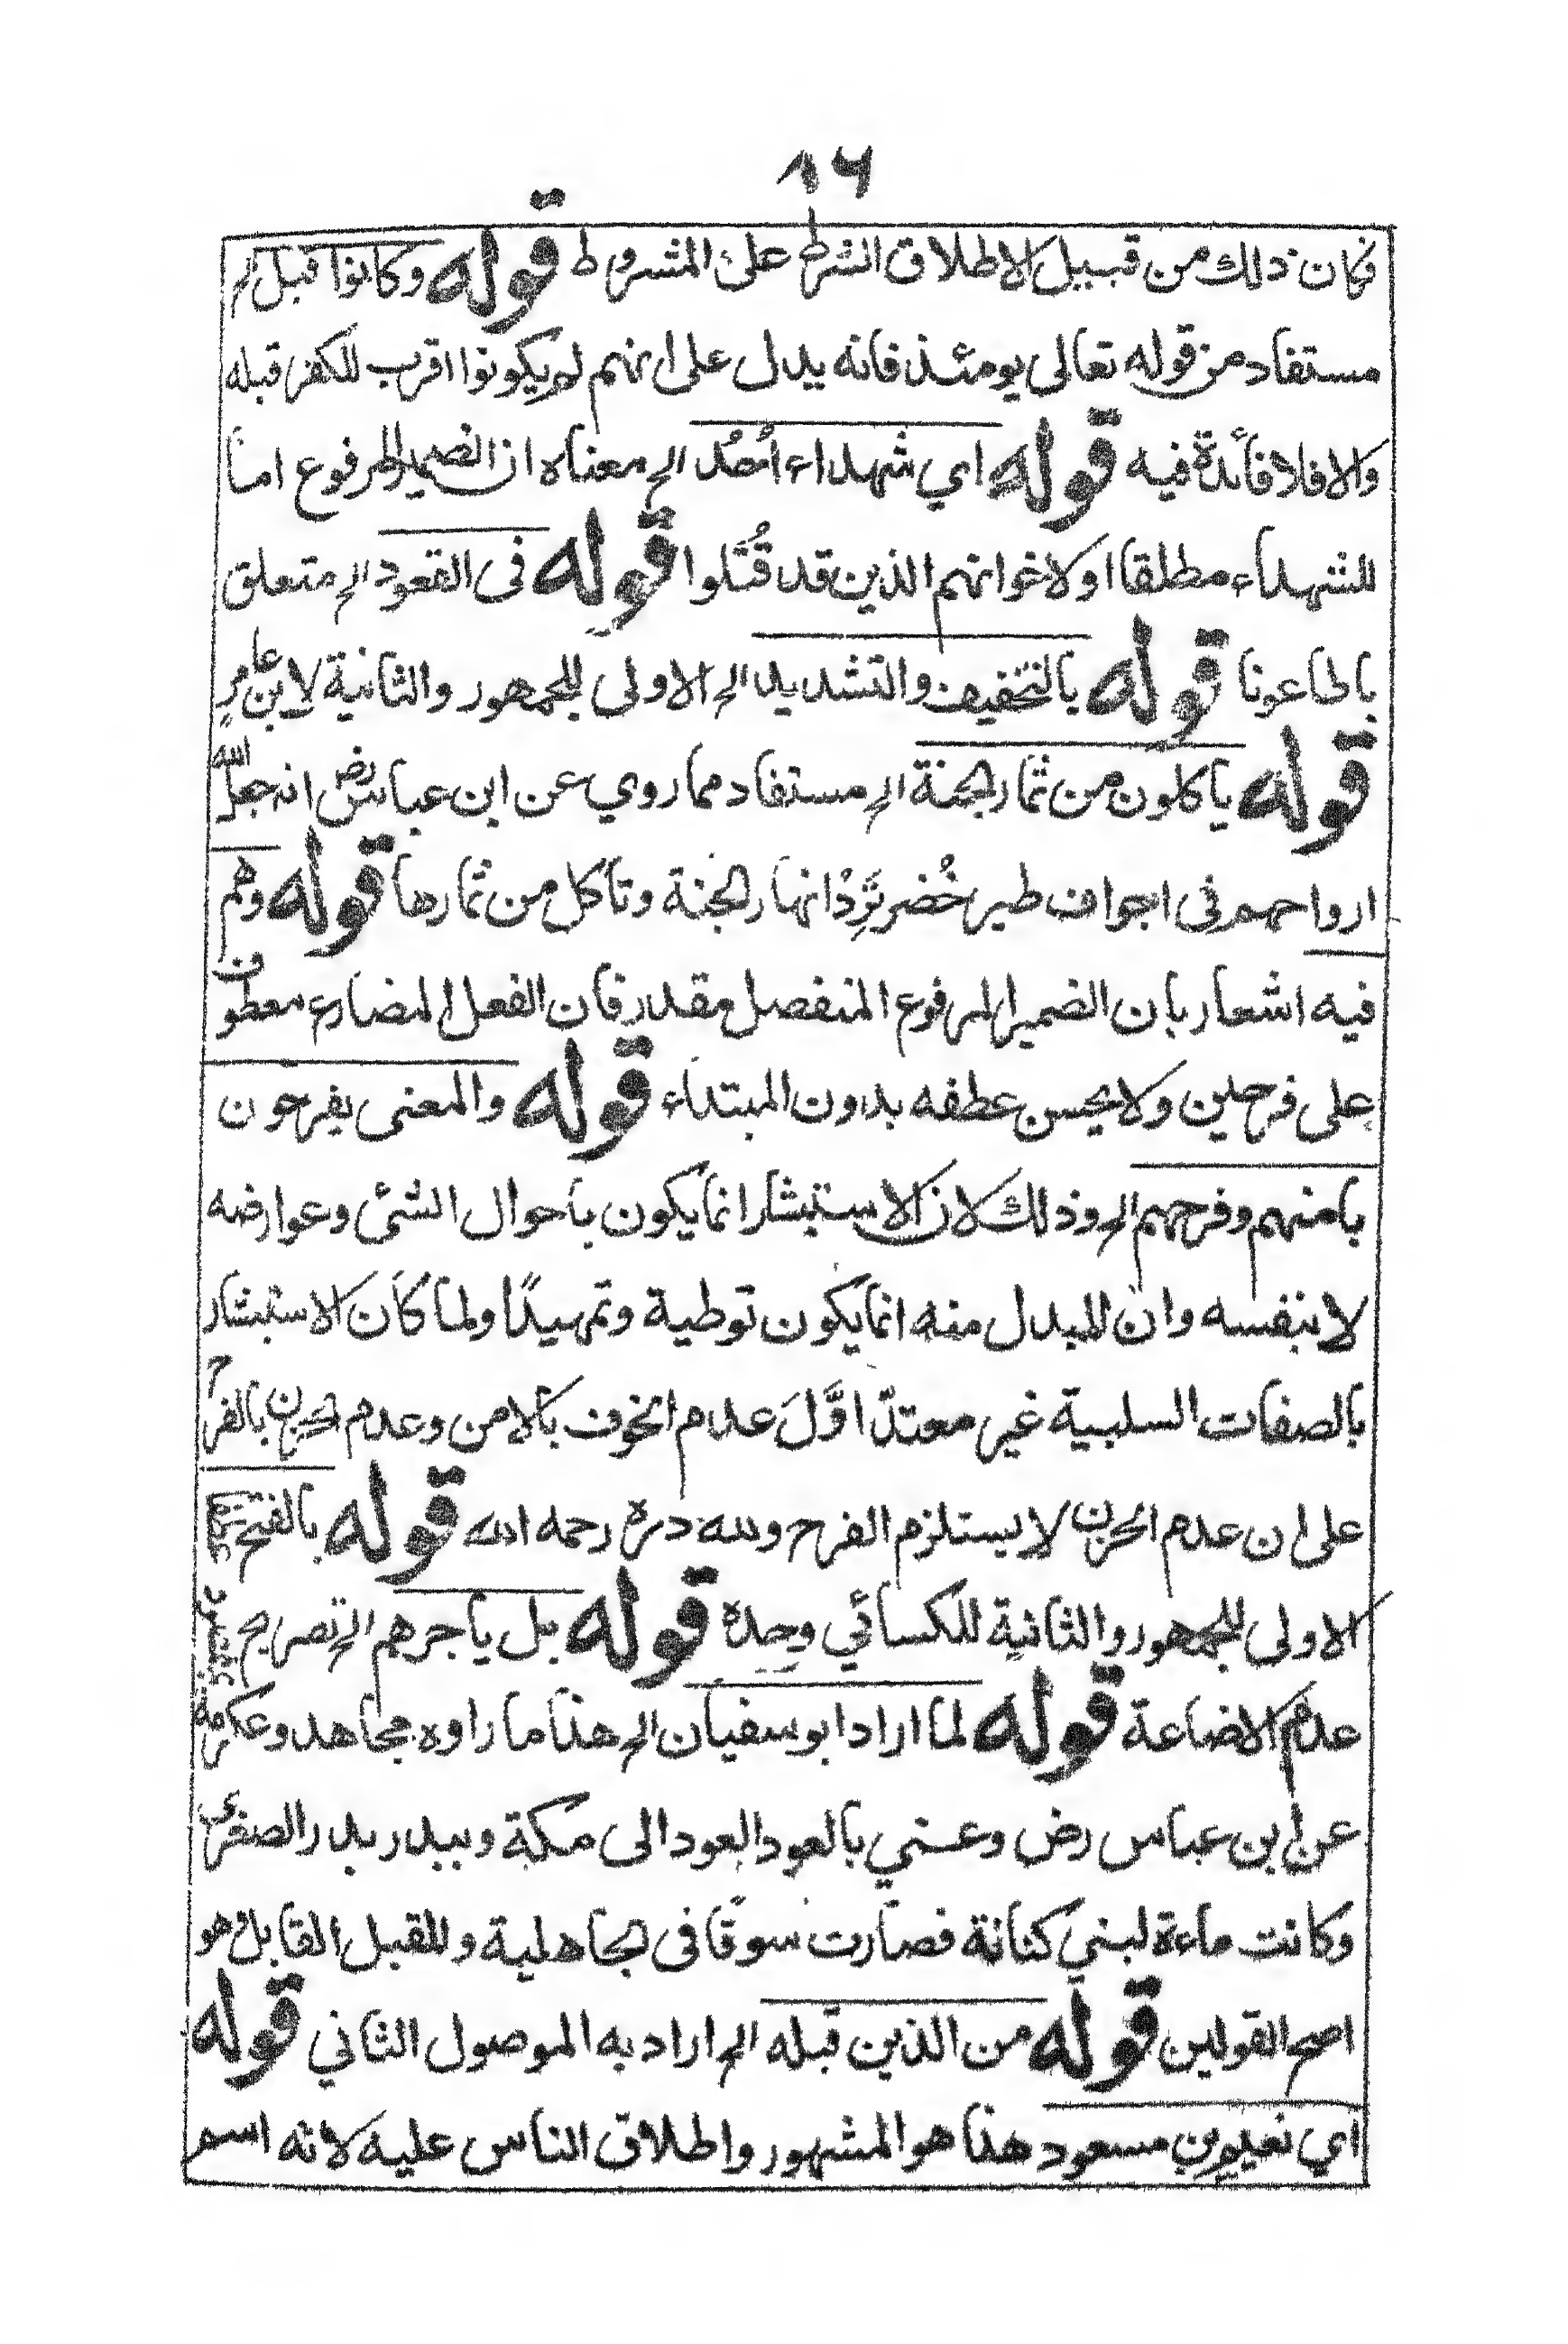 ٨٦
فكان ذلك من قبيل الاطلاق الشرط على المشروط قوله وكانوا قبل الخ
مستفاد من قوله تعالى يومئذ فانه يدل على انهم لم يكونوا اقرب للكفر قبله
والا فلا فائدة فيه قوله اي شهداء اُحُد الخ معناه ان الضمير المرفوع اما
للشهداء مطلقا او لاخوانهم الذين قد قُتلوا قوله فى القعود الخ متعلق
باطاعونا قوله بالتخفيف والتشديد الخ الاولى للجمهور والثانية لابن عامر
قوله ياكلون من ثمار الجنة الخ مستفاد مما روي عن ابن عباس رض انه جعل الله
ارواحهم فى اجواف طير خُضر تَرِدْ انهار الجنة وتاكل من ثمارها قوله وهم
فيه اشعار بان الضمير المرفوع المنفصل مقدر فان الفعل المضارع معطوف
على فرحين ولا يحسن عطفه بدون المبتداء قوله والمعنى يفرحون
بامنهم وفرحهم الخ وذلك لان الاستبشار انما يكون باحوال الشئ وعوارضه
لا بنفسه وان المبدل منه انما يكون توطية وتمهيدًا ولما كان الاستبشار
بالصفات السلبية غير معتدّ اوَّلَ عدم الخوف بالامن وعدم الحزن بالفرح
على ان عدم الحزن لا يستلزم الفرح ولله دره رحمه الله قوله بالفتح
الاولى للجمهور والثانية للكسائي وحده قوله بل ياجرهم الخ تصريح
عدم الاضاعة قوله لما اراد ابو سفيان الخ هذا ما راوه مجاهد وعكرمة
عن ابن عباس رض وعني بالعود العود الى مكة وببدر بدر الصغرى
وكانت ماءة لبني كنانة فصارت سوقًا فى الجاهلية وللقبل القابل وهو
اصح القولين قوله من الذين قبله الخ اراد به الموصول الثاني قوله
اي نعيم بن مسعود هذا هو المشهور واطلاق الناس عليه لانه اسم